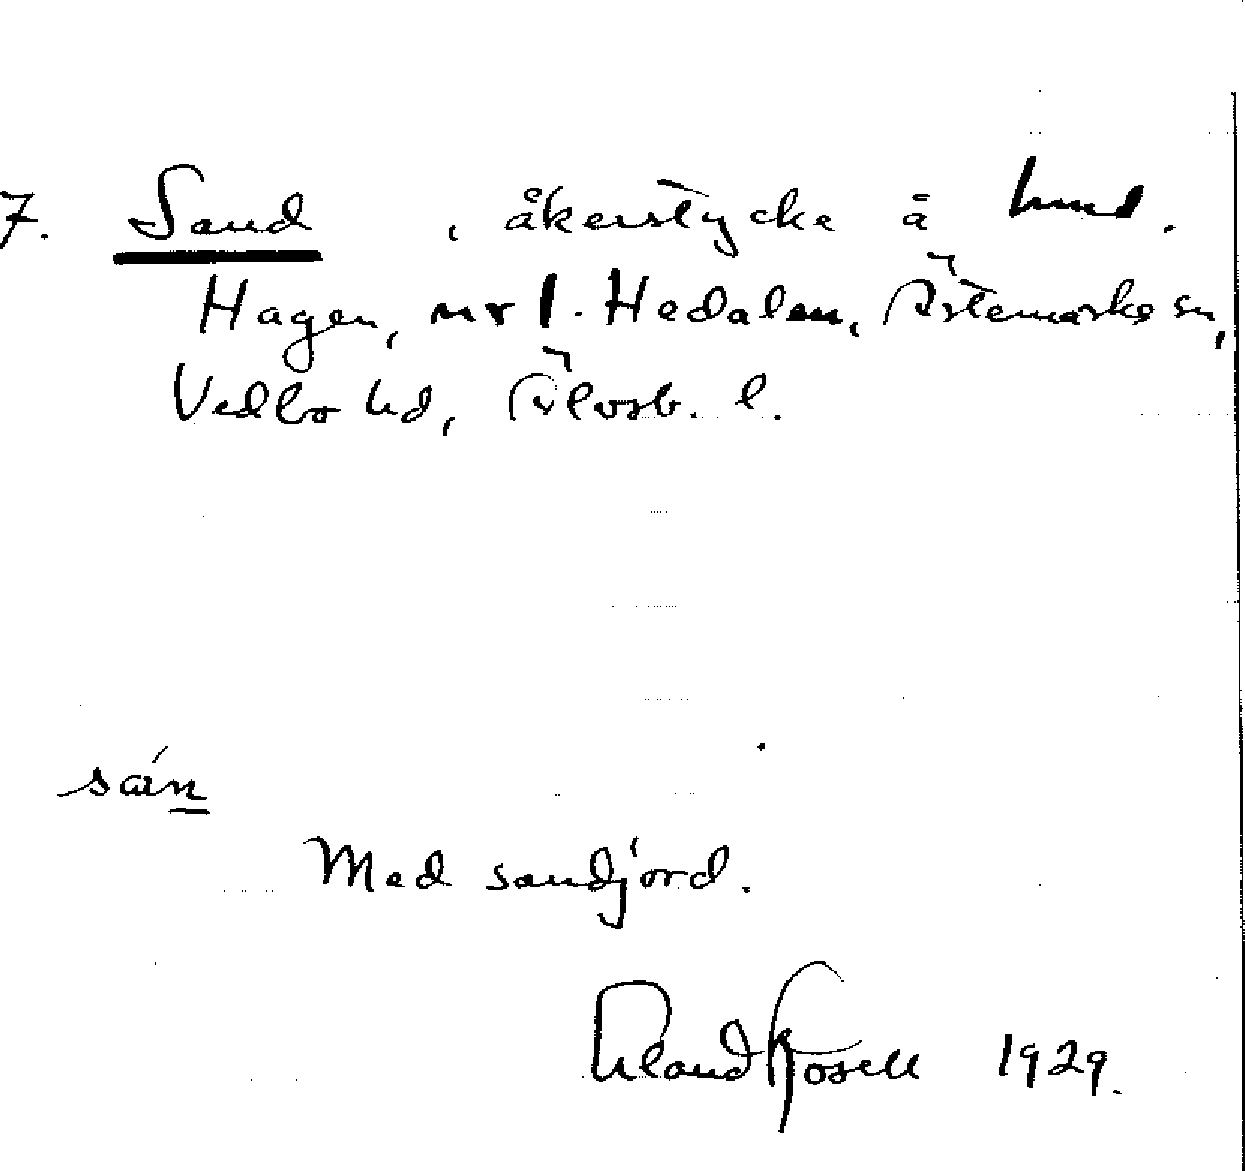 7. Sand , åkerstycke å hmd.
Hagen, nr 1. Hedalen, Ärtemarks sn,
Vedbo hd, Älvsb. l.
sán
Med sandjord.
Erland Rosell 1929.